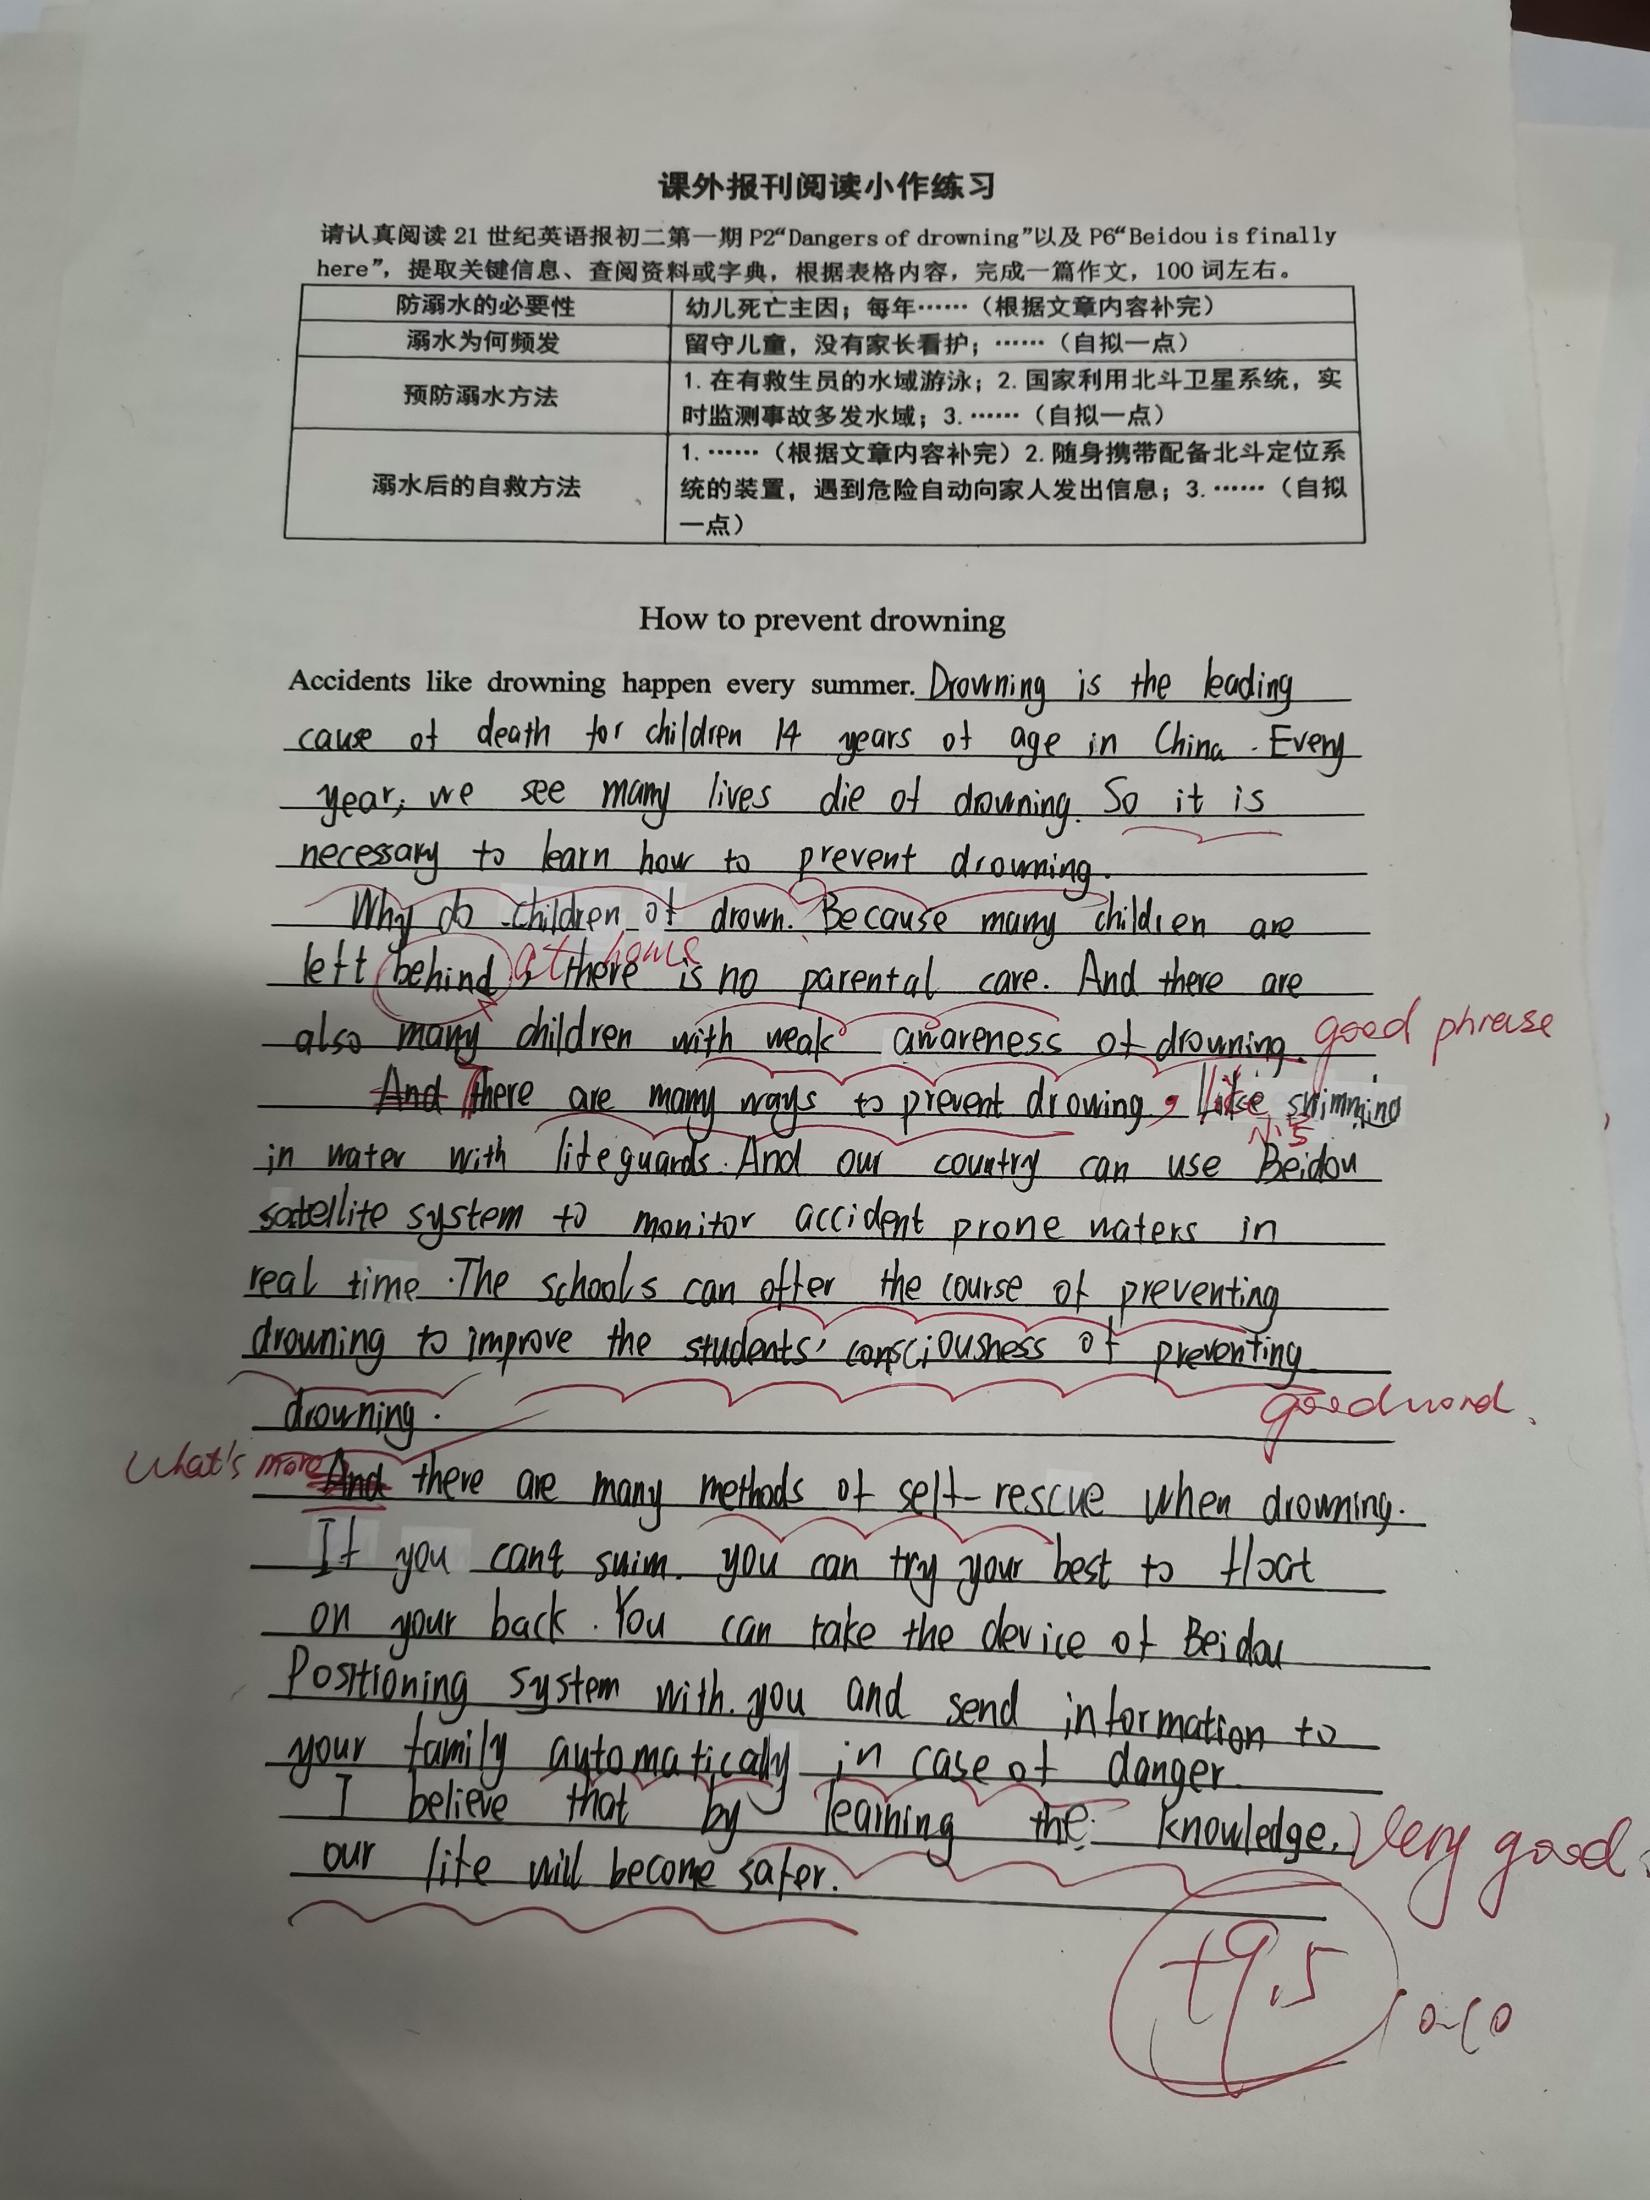 课外报刊阅读小作练习
请认真阅读 21 世纪英语报初二第一期 P2“Dangers of drowning”以及 P6“Beidou is finally
here”，提取关键信息、查阅资料或字典，根据表格内容，完成一篇作文，100 词左右。
防溺水的必要性 幼儿死亡主因；每年……（根据文章内容补完）
溺水为何频发 留守儿童，没有家长看护；……（自拟一点）
预防溺水方法 1. 在有救生员的水域游泳；2. 国家利用北斗卫星系统，实
时监测事故多发水域；3. ……（自拟一点）
溺水后的自救方法 1. ……（根据文章内容补完）2. 随身携带配备北斗定位系
统的装置，遇到危险自动向家人发出信息；3. ……（自拟
一点）
How to prevent drowning
Accidents like drowning happen every summer. Drowning is the leading
cause of death for children 14 years of age in China. Every
year, we see many lives die of drowning. So it is
necessary to learn how to prevent drowning.
Why do children of drown. Because many children are
left behind, there is no parental care. And there are
at home
also many children with weak awareness of drowning. good phrase
And There are many ways to prevent drowing, like swimming
小写
in water with lifeguards. And our country can use Beidou
satellite system to monitor accident prone waters in
real time. The schools can offer the course of preventing
drowning to improve the students' consciousness of preventing
drowning. good word.
What's more And there are many methods of self-rescue when drowning.
If you can't swim. you can try your best to float
on your back. You can take the device of Beidou
Positioning system with you and send information to
your family automatically in case of danger.
I believe that by learning the knowledge, Very good
our life will become safer.
+9.5